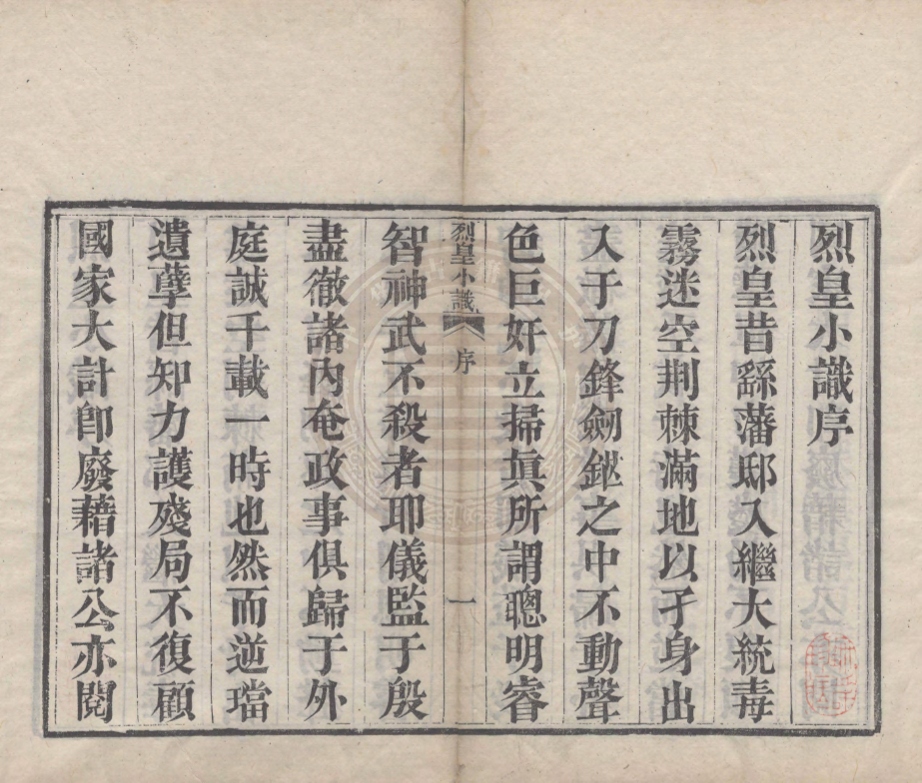 烈皇小識序
烈皇昔繇藩邸入繼大統毒
霧迷空荆棘滿地以孑身出
入于刀鋒劍鋩之中不動聲
色巨奸立掃眞所謂聰明睿
烈皇小識 序 一
智神武不殺者耶儀監于殷
盡徹諸內奄政事俱歸于外
庭誠千載一時也然而逆璫
遺孽但知力護殘局不復顧
國家大計卽廢藉諸公亦閱